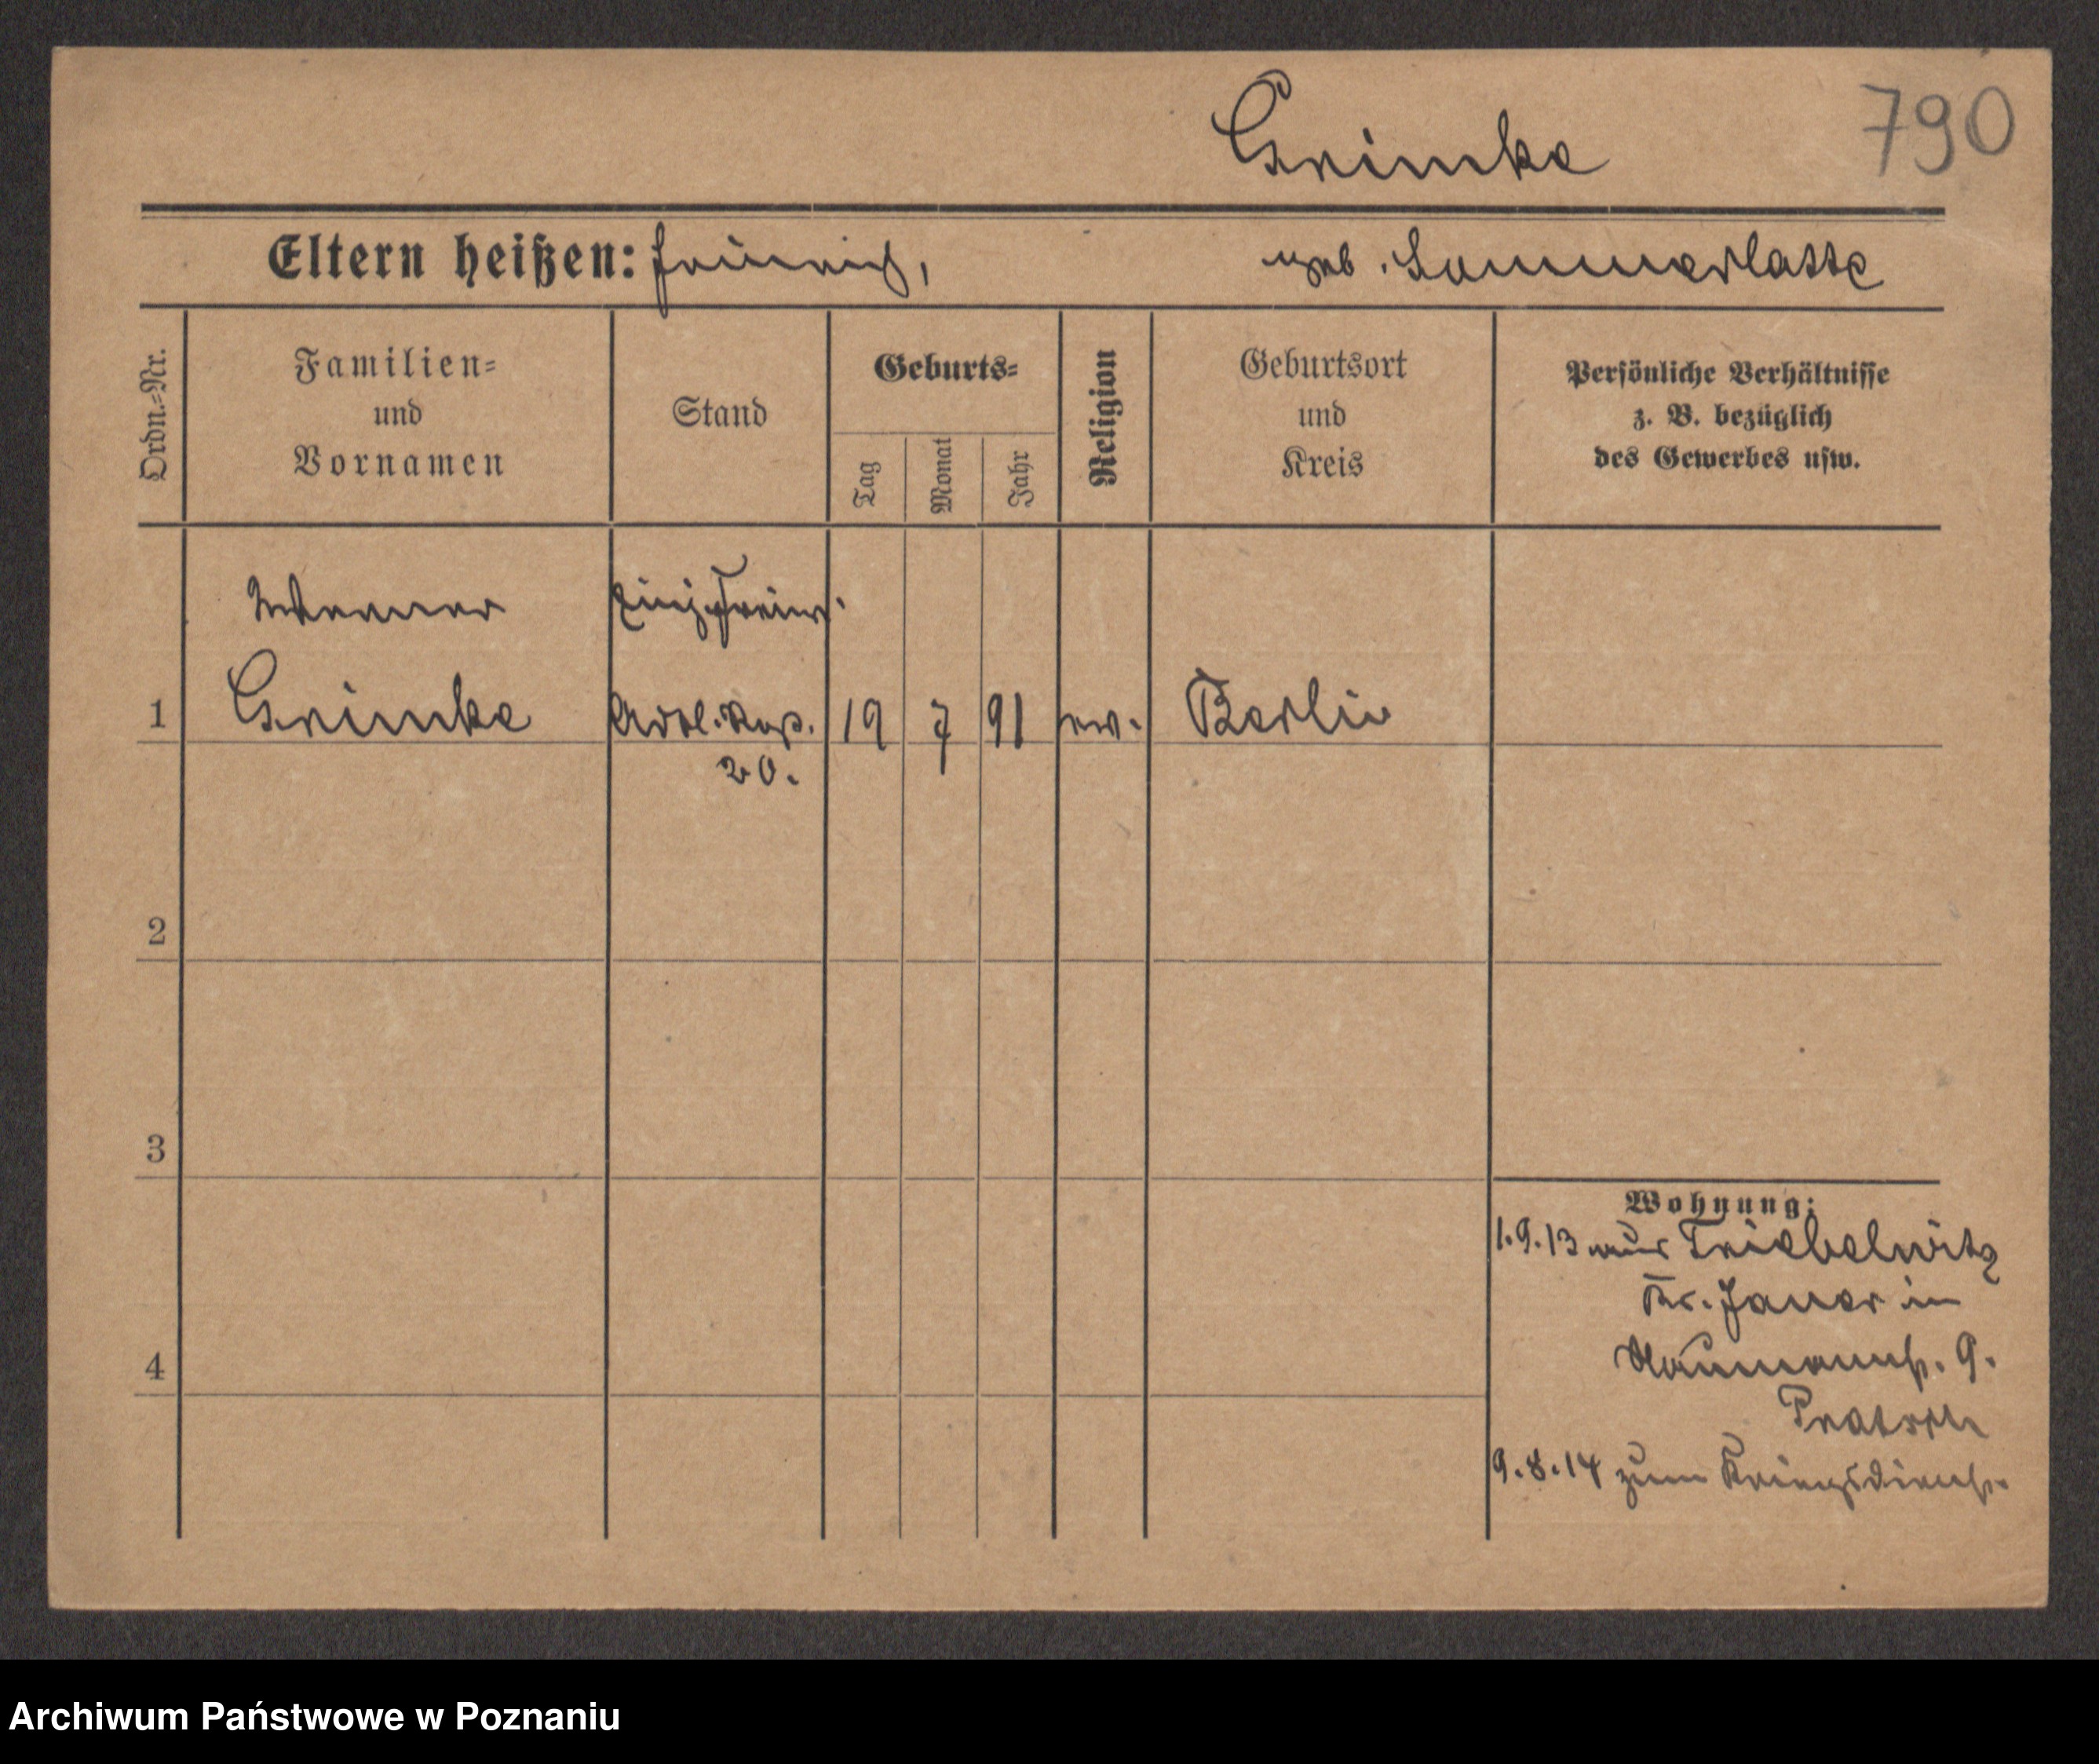 790
Grimke
Eltern heißen: Heinrich, geb. Sommerlatte
Ordn.=Nr.
Familien=
und
Vornamen
Stand
Geburts=
Tag
Monat
Jahr
Religion
Geburtsort
und
Kreis
Persönliche Verhältnisse
z. B. bezüglich
des Gewerbes usw.
Werner Einj. Freiw.
1 Grimke Artl. Reg. 19 7 91 ev. Berlin
20.
2
3
Wohnung:
1.9.13 aus Triebelwitz
Kr. Jauer in
4
Naumannstr. 9.
9.8.14 zum Kriegsdienst.
Archiwum Państwowe w Poznaniu